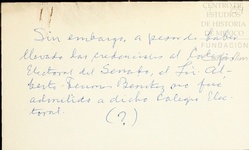 Sin embargo, a pesar de haber
llevado las credenciales al Colegio
Electoral del Senado, el Lic. Al-
berto Terrones Benitez no fue
admitido a dicho Colegio Elec-
toral.
(?)
CENTRO
DE ESTUDIOS
DE HISTORIA
DE MEXICO
FUNDACIÓN